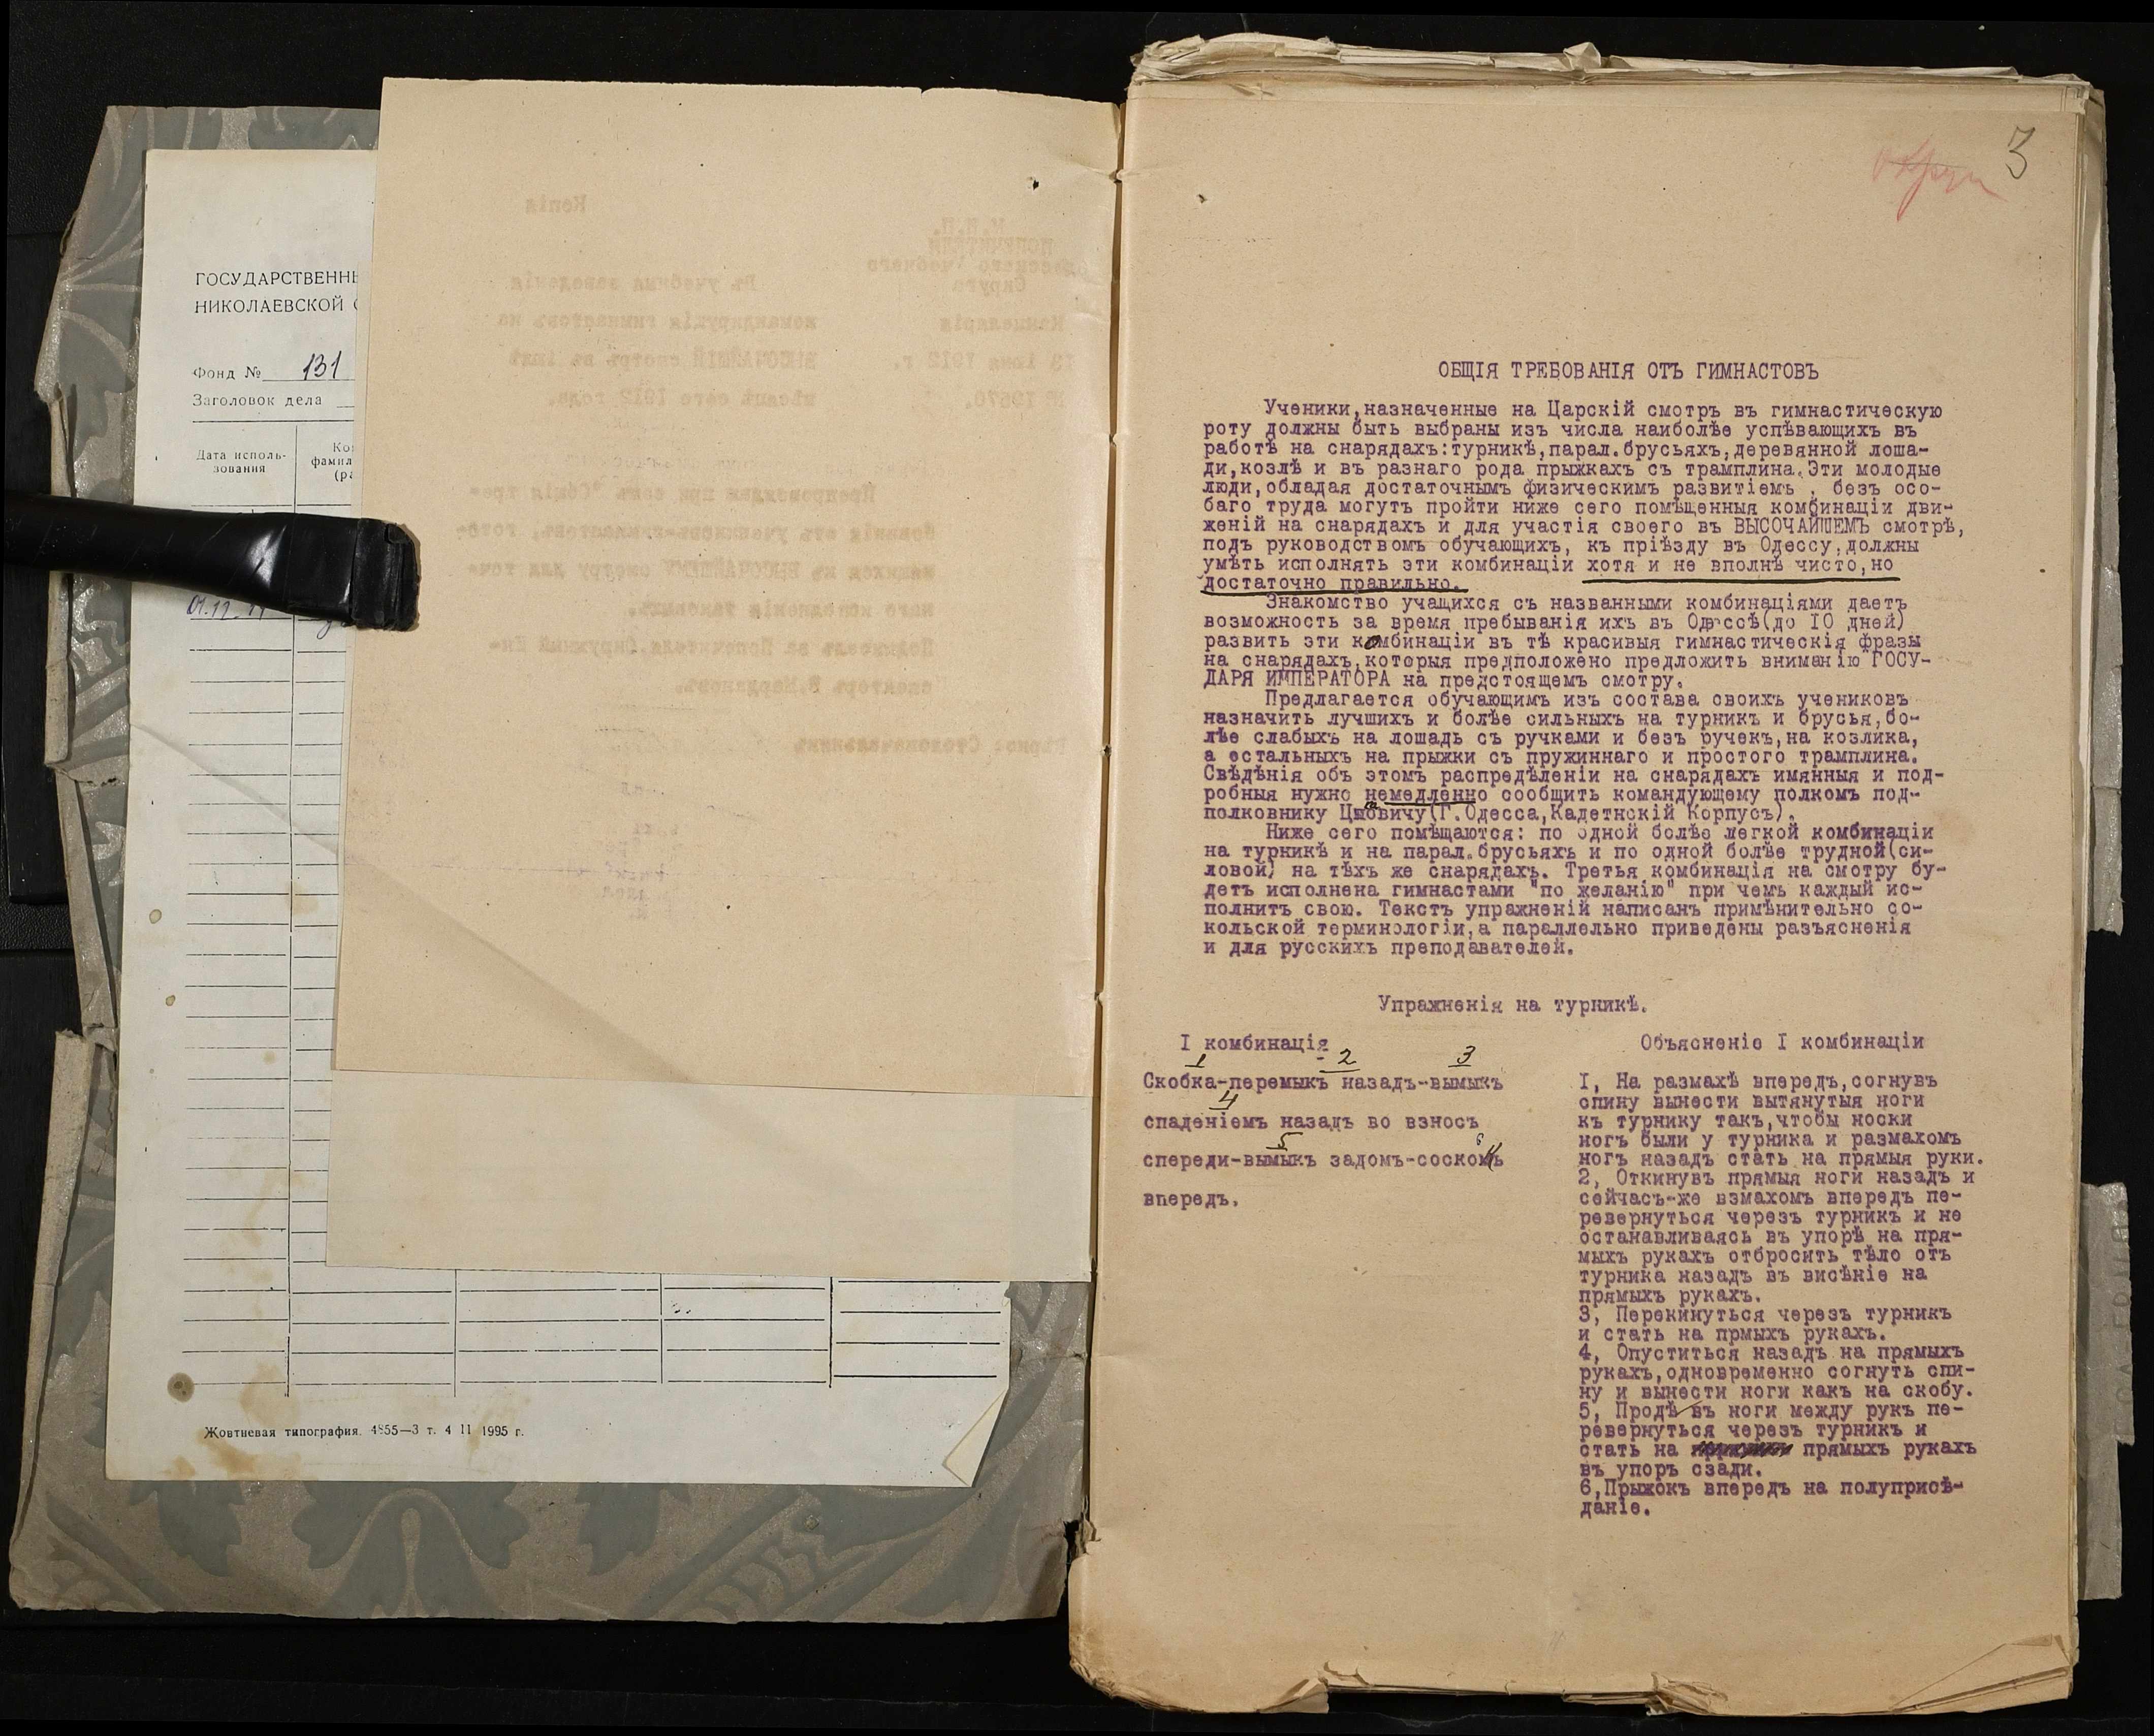 ГОСУДАРСТВЕННЫ
НИКОЛАЕВСКОЙ
Фонд № 131
Заголовок дела
Дата исполь-
зования
фамил
01.12.
Жовтневая типография. 4855—3 т. 4 11 1995 г.
Копія
М.Н.П.
ПОПЕЧИТЕЛЬ
Одесскаго Учебнаго
Округа
Канцелярія
13 іюня 1912 г.
№ 19570.
Въ учебныя заведенія
командируюція гимнастовъ на
ВЫСОЧАЙШІЙ смотръ въ іюлѣ
мѣсяцѣ сего 1912 года.
Препровождаю при семъ "Общія тре-
бованія отъ учениковъ-гимнастовъ, гото-
вящихся къ ВЫСОЧАЙШЕМУ смотру для точ-
наго исполненія таковыхъ.
Подписалъ за Попечителя, Окружный Ин-
спекторъ
Вѣрно: Столоначальникъ
3
ОБЩІЯ ТРЕБОВАНІЯ ОТЪ ГИМНАСТОВЪ
Ученики,назначенные на Царскій смотръ въ гимнастическую
роту должны быть выбраны изъ числа наиболѣе успѣвающихъ въ
работѣ на снарядахъ:турникѣ,парал.брусьяхъ,деревянной лоша-
ди,козлѣ и въ разнаго рода прыжкахъ съ трамплина.Эти молодые
люди,обладая достаточнымъ физическимъ развитіемъ , безъ осо-
баго труда могутъ пройти ниже сего помѣщенныя комбинаціи дви-
женій на снарядахъ и для участія своего въ ВЫСОЧАЙШЕМЪ смотрѣ,
подъ руководствомъ обучающихъ, къ пріѣзду въ Одессу,должны
умѣть исполнять эти комбинаціи хотя и не вполнѣ чисто,но
достаточно правильно.
Знакомство учащихся съ названными комбинаціями даетъ
возможность за время пребыванія ихъ въ Одессѣ(до 10 дней)
развить эти комбинаціи въ тѣ красивыя гимнастическія фразы
на снарядахъ,которыя предположено предложить вниманію ГОСУ-
ДАРЯ ИМПЕРАТОРА на предстоящемъ смотру.
Предлагается обучающимъ изъ состава своихъ учениковъ
назначить лучшихъ и болѣе сильныхъ на турникъ и брусья,бо-
лѣе слабыхъ на лошадь съ ручками и безъ ручекъ,на козлика,
а остальныхъ на прыжки съ пружиннаго и простого трамплина.
Свѣдѣнія объ этомъ распредѣленіи на снарядахъ имянныя и под-
робныя нужно немедленно сообщить командующему полкомъ под-
полковнику (Г.Одесса,Кадетнскій Корпусъ).
Ниже сего помѣщаются: по одной болѣе легкой комбинаціи
на турникѣ и на парал.брусьяхъ и по одной болѣе трудной(си-
ловой) на тѣхъ же снарядахъ. Третья комбинація на смотру бу-
детъ исполнена гимнастами "по желанію" при чемъ каждый ис-
полнитъ свою. Текстъ упражненій написанъ примѣнительно со-
кольской терминологіи,а параллельно приведены разъясненія
и для русскихъ преподавателей.
Упражненія на турникѣ.
I комбинація
1 2 3
Скобка-перемыкъ назадъ-вымыкъ
4
спаденіемъ назадъ во взносъ
5 6
спереди-вымыкъ задомъ-соскокъ
впередъ.
Объясненіе I комбинаціи
I, На размахѣ впередъ,согнувъ
спину вынести вытянутыя ноги
къ турнику такъ,чтобы носки
ногъ были у турника и размахомъ
ногъ назадъ стать на прямыя руки.
2, Откинувъ прямыя ноги назадъ и
сейчасъ-же взмахомъ впередъ пе-
ревернуться черезъ турникъ и не
останавливаясь въ упорѣ на пря-
мыхъ рукахъ отбросить тѣло отъ
турника назадъ въ висѣніе на
прямыхъ рукахъ.
3, Перекинуться черезъ турникъ
и стать на прмыхъ рукахъ.
4, Опуститься назадъ на прямыхъ
рукахъ,одновременно согнуть спи-
ну и вынести ноги какъ на скобу.
5, Продѣвъ ноги между рукъ пе-
ревернуться черезъ турникъ и
стать на прямыхъ рукахъ
въ упоръ сзади.
6,Прыжокъ впередъ на полуприсѣ-
даніе.